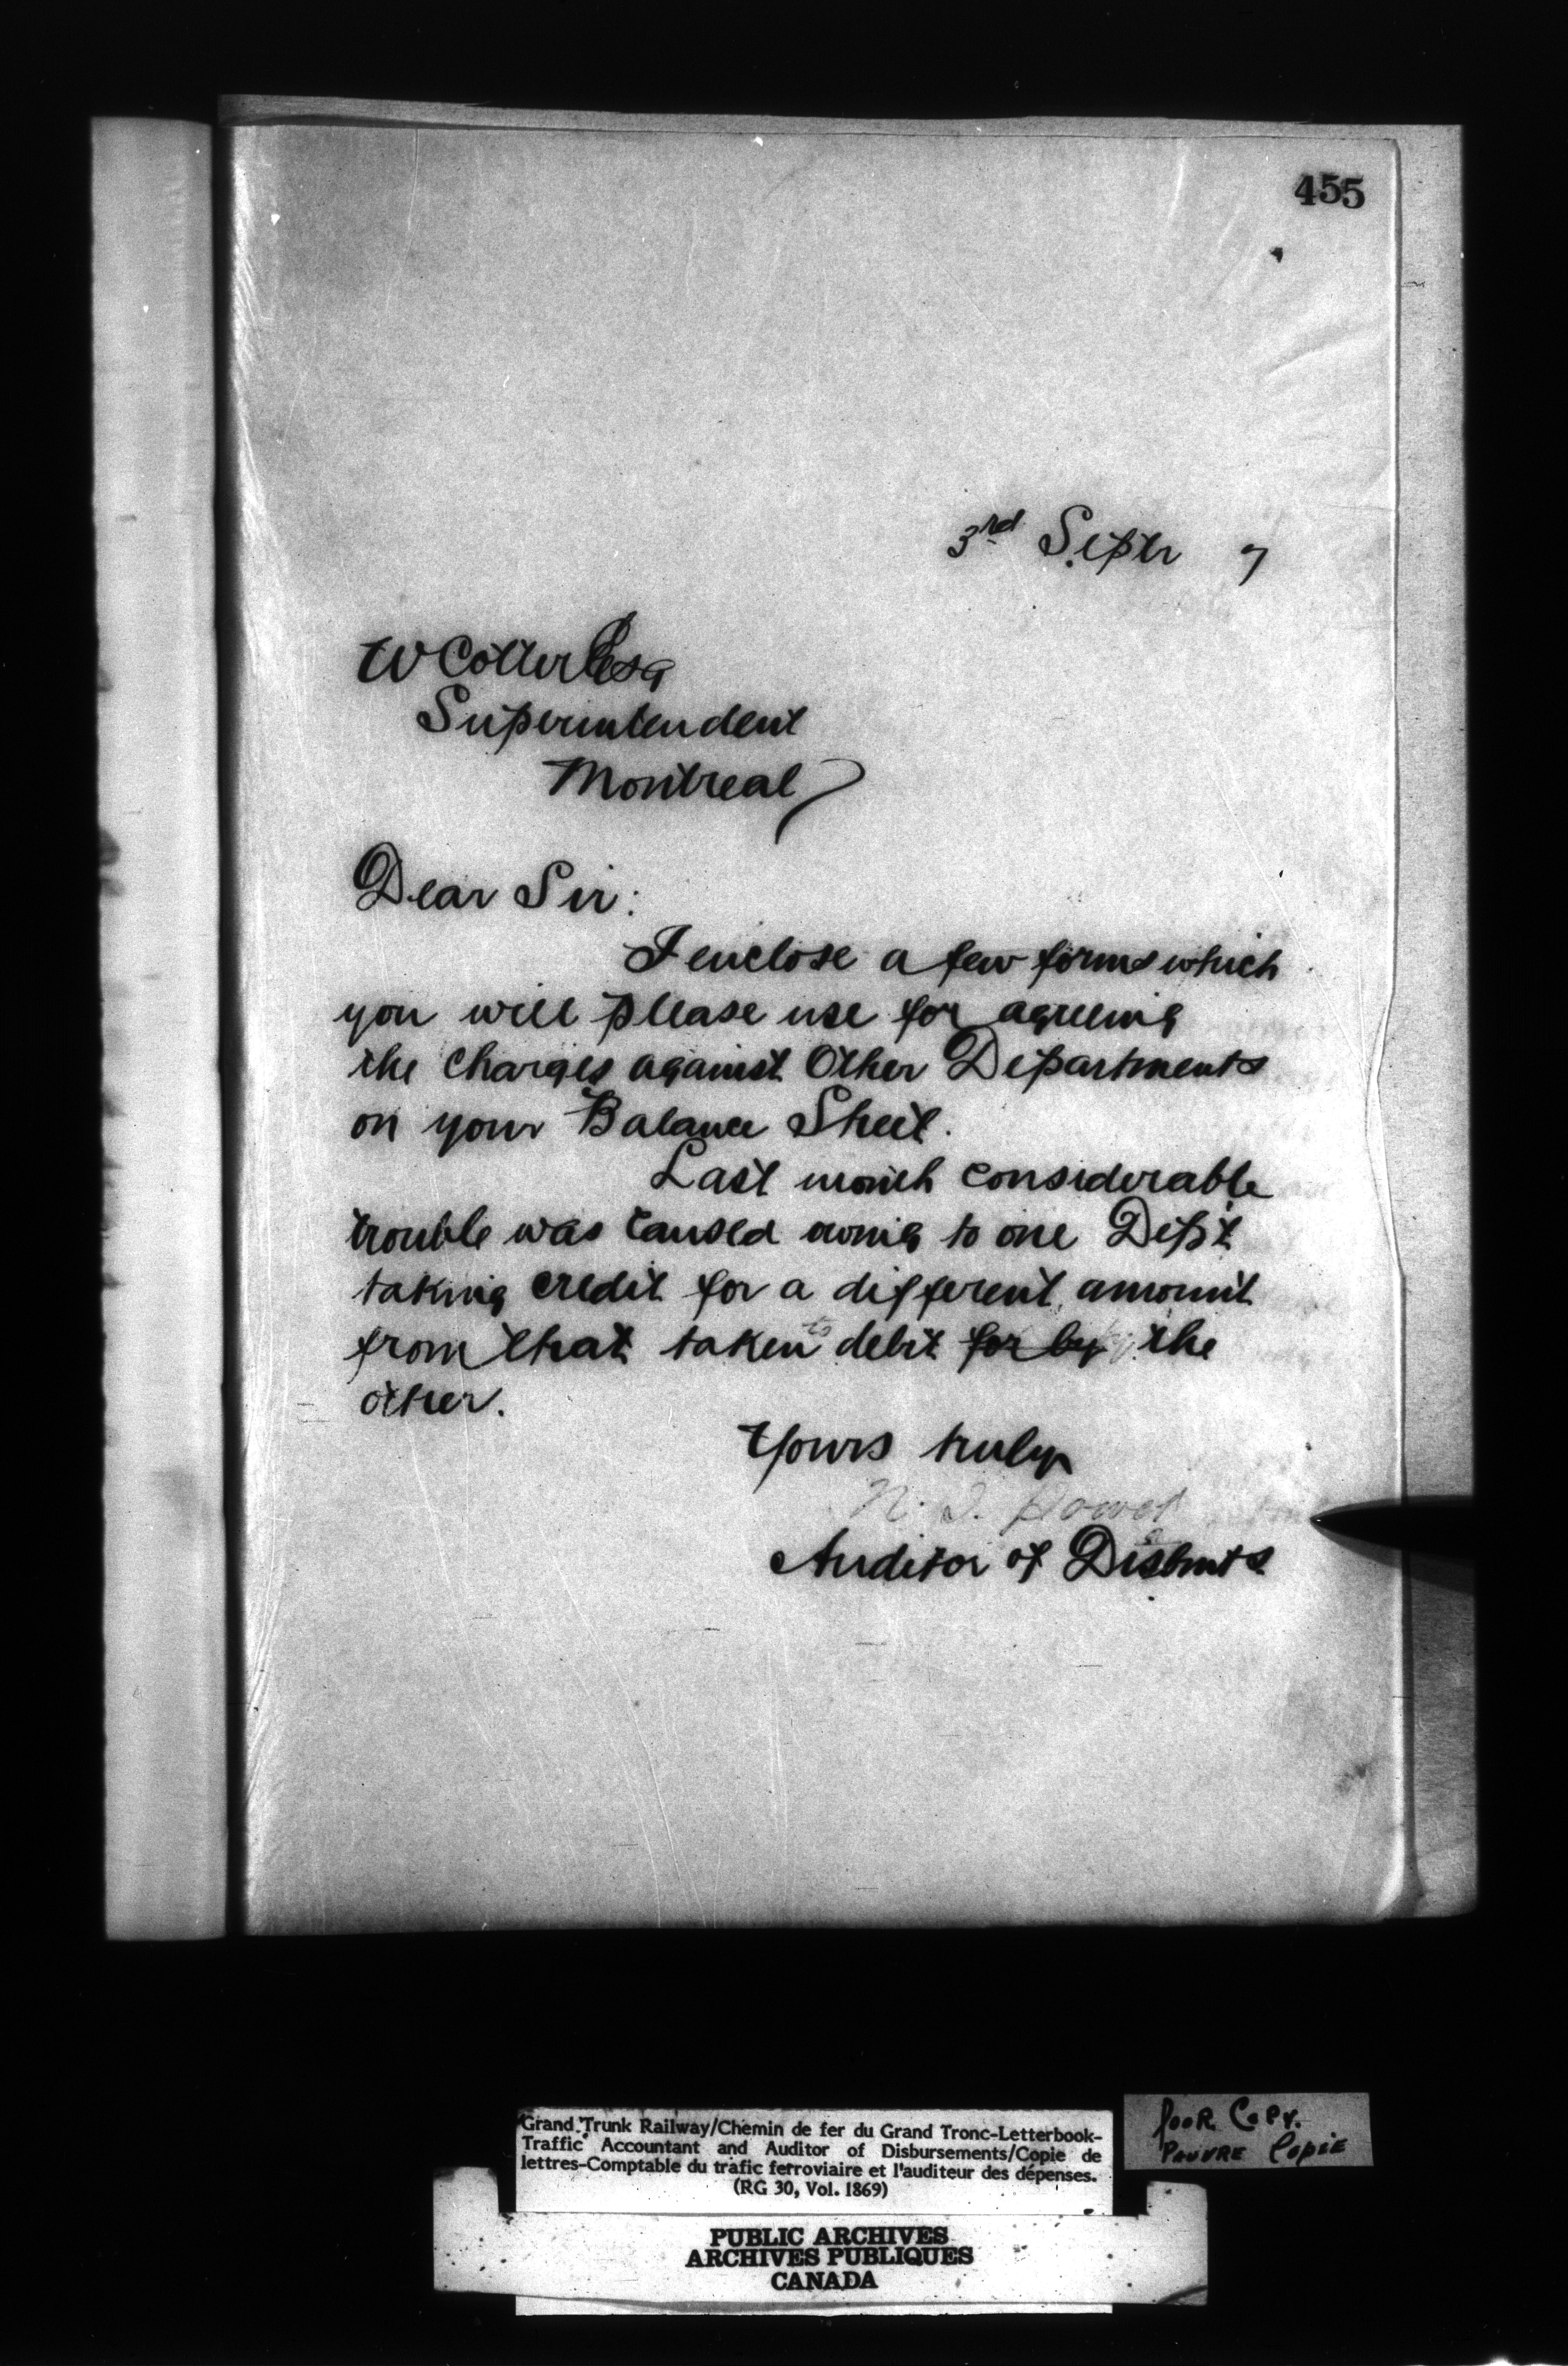 455
3rd Septr 7
W Cotter Esq
Superintendent
Montreal
Dear Sir:
I enclose a few forms which
you will please use for agreeing
the charges against Other Departments
on your Balance Sheet.
Last month considerable
trouble was caused owing to one Dept
taking credit for a different amount
from that taken to debit for by by the
other.
Yours truly
N. J. Power
Auditor of Disbmts
Grand Trunk Railway/Chemin de fer du Grand Tronc-Letterbook-
Traffic Accountant and Auditor of Disbursements/Copie de
lettres-Comptable du trafic ferroviaire et l'auditeur des dépenses.
(RG 30, Vol. 1869)
POOR COPY.
PAUVRE COPIE
PUBLIC ARCHIVES
ARCHIVES PUBLIQUES
CANADA